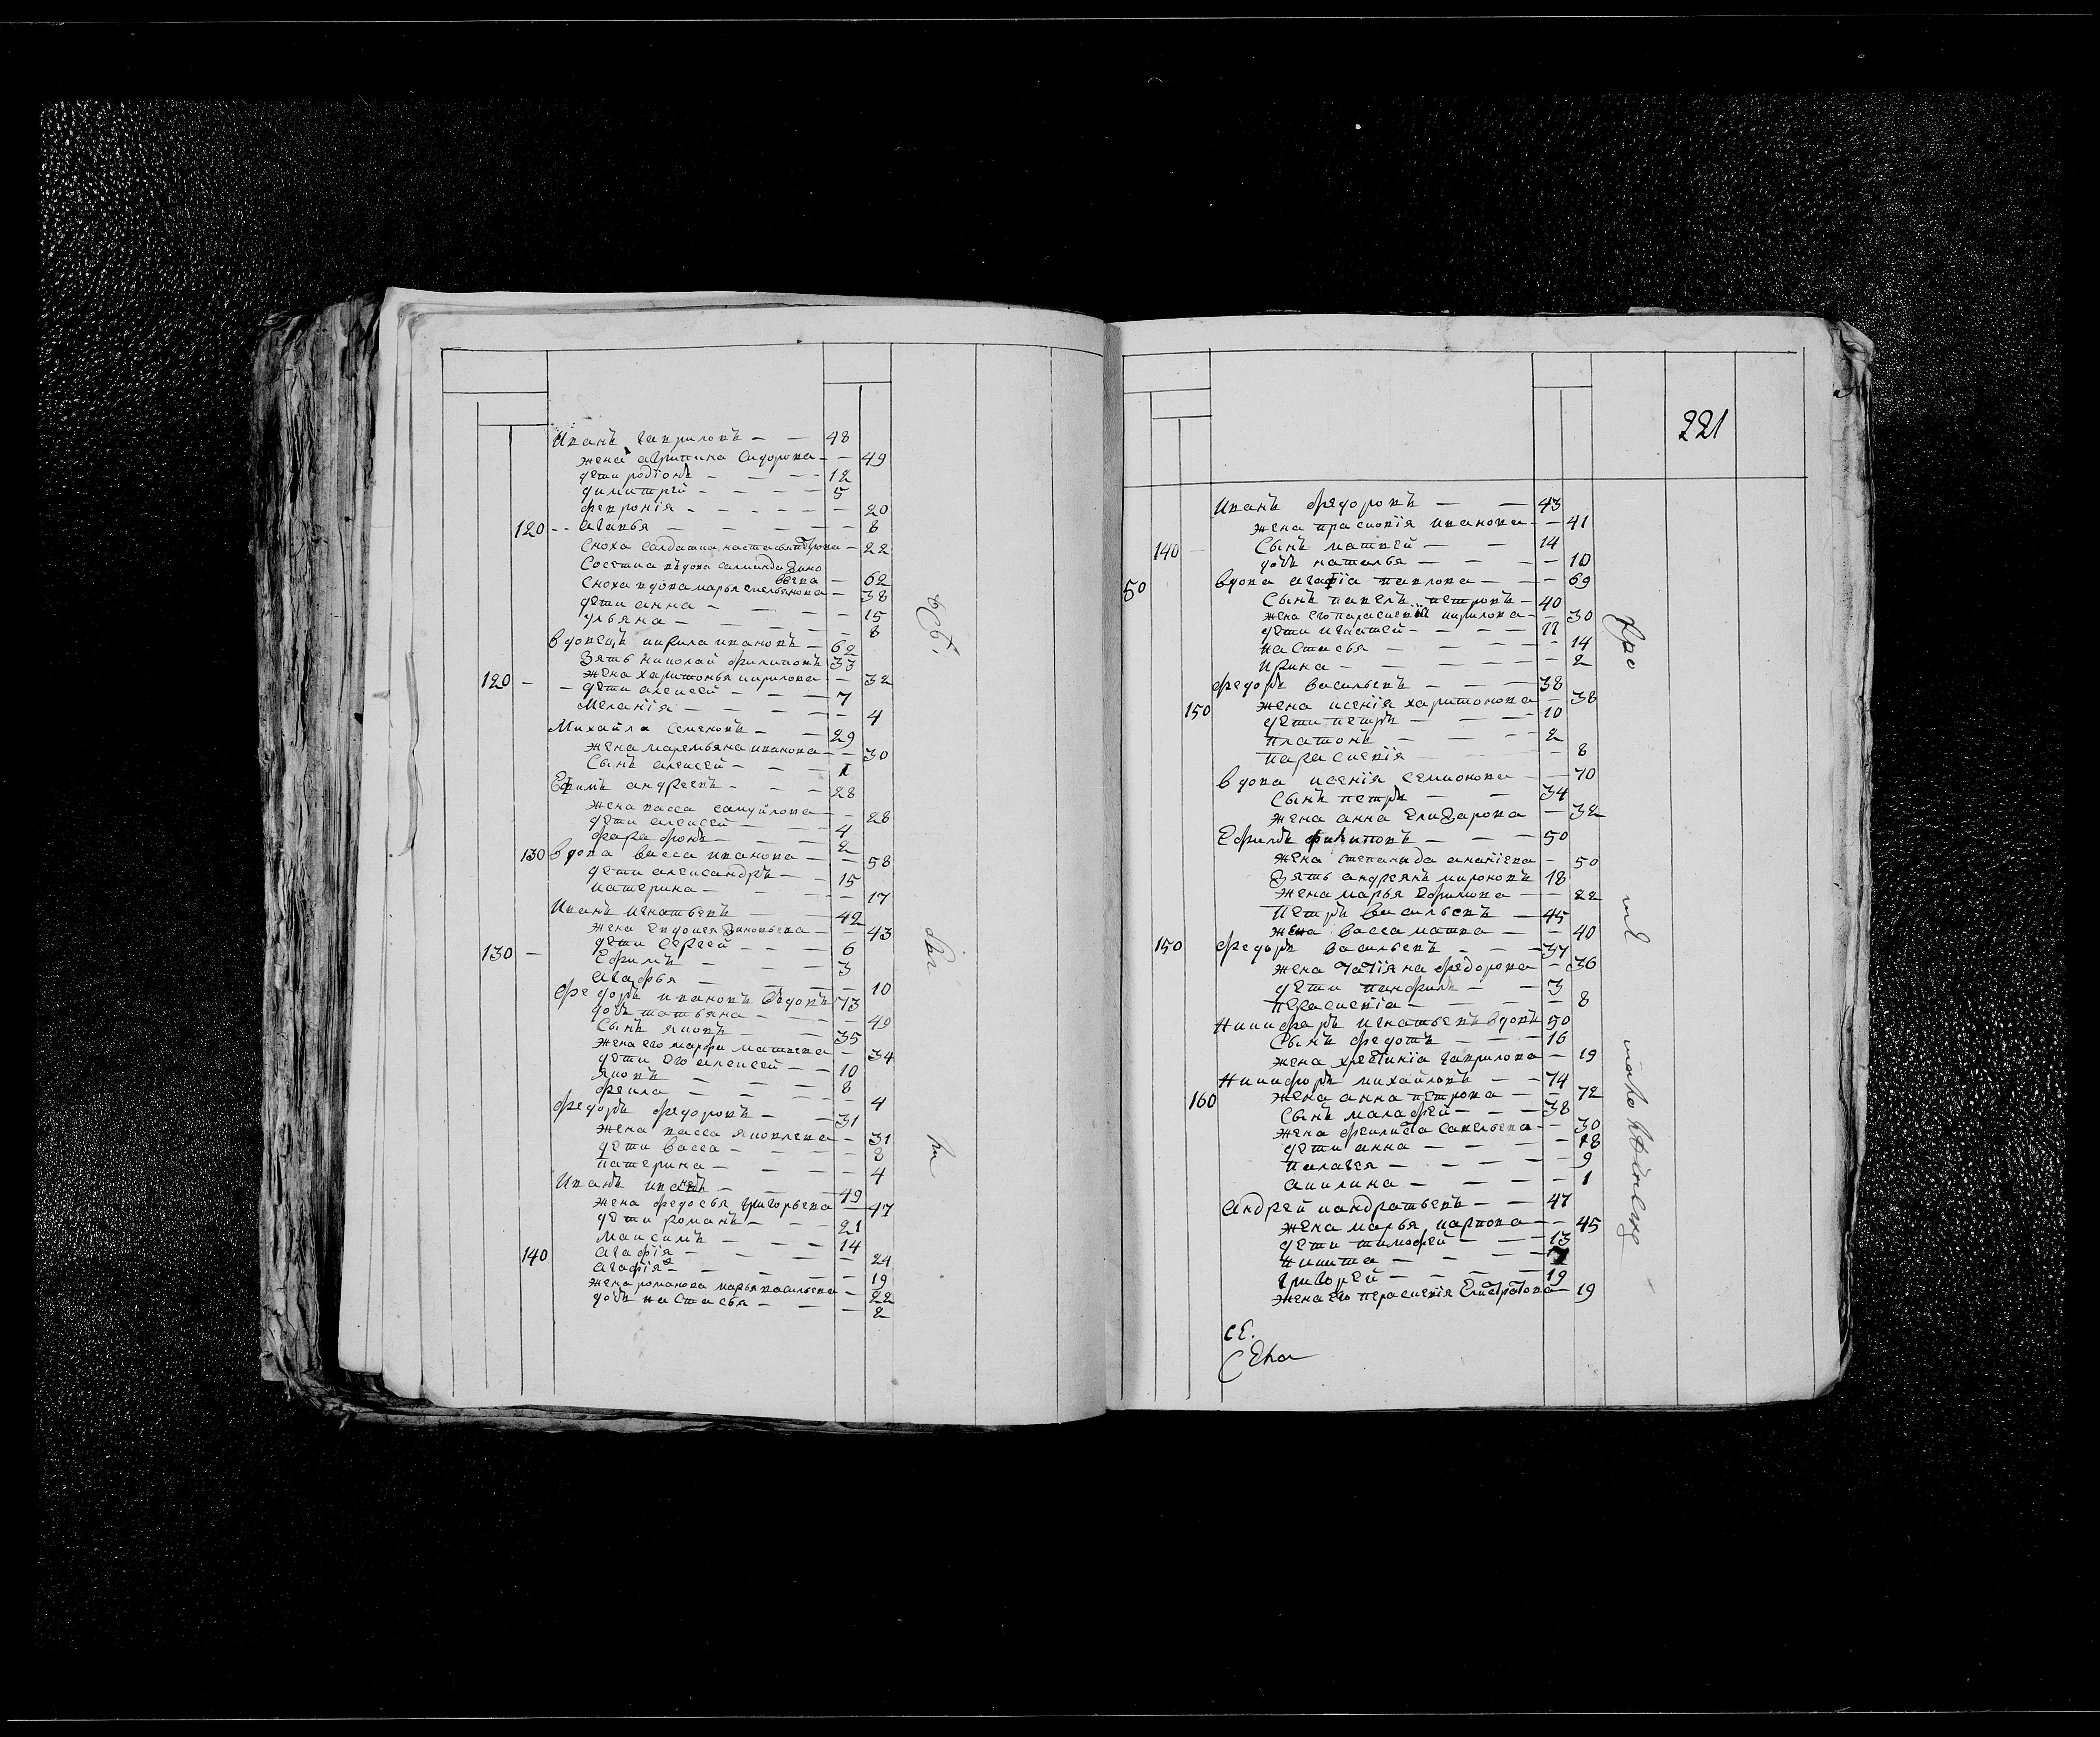 Иванъ Гавриловъ — — 48
жена агрипина Сидорова — — 49
дети родіонъ — — — 12
димитрей — — — 5
февронія — — — — 20
120 -- агапья — — — — 8
Сноха салдатка настасья петрова — 22
Соестка вдова саломанида Зино
веева — 62
Сноха вдова марья емельянова — 38
дети анна — — — 15
ульяна — — — — 8
вдовецъ кирила ивановъ — 62
Зять николай филиповъ 33
жена харитонья кирилова — 32
120 — — дети алексей — — — 7
Меланія — — — — 4
Михайла Семеновъ — — 29
жена маремьяна иванова — — 30
Сынъ алексей — — — 1
Ефимъ андреевъ — — — 28
жена васса самуйлова — — 28
дети алексей — — — 4
фарафонъ — — — 2
130 вдова васса иванова — — 58
дети александръ — — 15
катерина — — — 17
Иванъ игнатьевъ — — 42
жена Евдокея Зиновьева — — 43
дети Сергей — — — 6
130 — Ефимъ — — — 3
агафья — — — — 10
федоръ ивановъ вдовъ 73
дочь татьяна — — — 49
Сынъ яковъ — — — 35
жена его марфа матвеева — 34
дети его алексей — — 10
яковъ — — — 8
фекла — — — — 4
федоръ федоровъ — — 31
жена васса яковлева — 31
дети васса — — — 8
катерина — — — 4
Иванъ ивановъ — — — 49
жена федосья григорьева — 47
дети романъ — — — 21
Максимъ — — — 14
140 агафія — — — — 24
агафія — — — — 19
жена романова марья васильева — 22
дочь настасья — — — 2
221
Иванъ федоровъ — — 43
жена прасковія иванова — — 41
140 — Сынъ матвей — — 14
дочь наталья — — — 10
50 вдова агафіа павлова — — — 69
Сынъ павелъ петровъ — 40
жена его параскевія кирилова — — 30
дети игнатей — — — 11
настасья — — — — 14
ирина — — — — 2
федоръ васильевъ — — — 38
150 жена ксенія харитонова 38
дети петръ — — — 10
платонъ — — — 2
параскевія — — — 8
вдова ксенія семионова — — 70
Сынъ петръ — — 34
жена анна Елизарова — 32
Ефимъ филиповъ — — 50
жена степанида ананіева — 50
Зять андреянъ мироновъ 18
жена марья Ефимова — 22
петръ васильевъ — 45
жена васса матвева — — 40
150 федоръ васильевъ — — — 37
жена татіяна федорова — 36
дети панфилъ — — 3
параскевіа — — — — 8
Никифоръ игнатьевъ вдовъ 50
Сынъ федотъ — — — 16
жена христиніа гаврилова — 19
Никифоръ михайловъ — — 74
160 жена анна петрова — — 72
Сынъ малафей — — — 38
жена фекли Савельева — — 30
дети анна — — — — 18
палагея — — — — 9
акилина — — — — 1
андрей кандратьевъ — — 47
жена марья карпова — — 45
дети тимофей — — 13
никита — — — 7
григорей — — — — 19
жена его параскевія Елистратова — 19